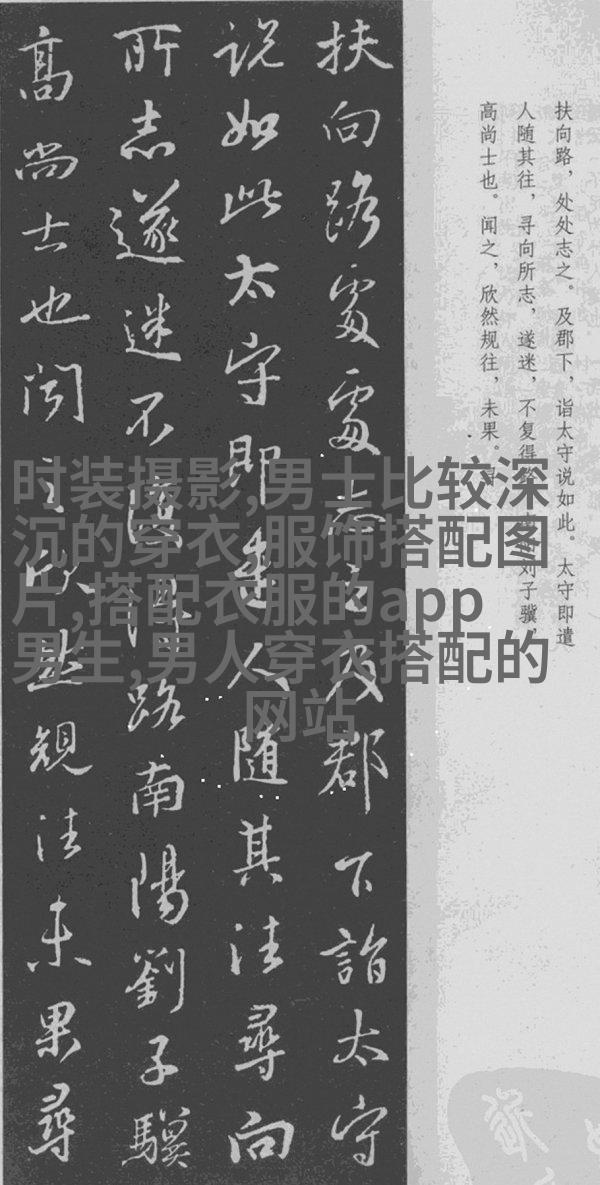 扶向路，处处志之。及郡下，诣太守说如此。太守即遣
人随其往，寻向所志，遂迷，不复得刘子骥，
高尚士也。闻之，欣然规往，未果。
扶向路處處志之及郡下詣太守
説如此太守即遣人隨其往尋向
所志遂迷不復得路南陽劉子驥
高尚士也聞之欣然規往未果尋
时装摄影,男士比较深
沉的穿衣,服饰搭配图
片,搭配衣服的app
男生,男人穿衣搭配的
网站